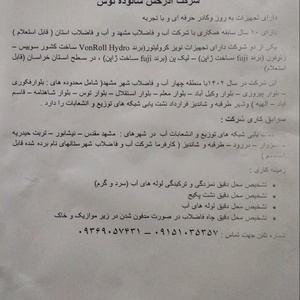 شرکت آذرخش شالوده توس
دارای تجهیزات به روز وکادر حرفه ای و با تجربه
دارای ۲۰ سال سابقه همکاری با شرکت آب و فاضلاب مشهد و آب و فاضلاب استان ( قابل استعلام )
یکی از دو شرکت دارای تجهیزات نویز کرولیتور(برند VonRoll Hydro ساخت کشور سوییس –
زئوفون (برند fuji ساخت ژاپن) – لیک پن (برند fuji ساخت ژاپن) ، در سطح استان خراسان (قابل
استعلام)
این شرکت در سال ۱۴۰۲با منطقه چهار آب و فاضلاب شهر مشهد( شامل محدوده های : بلوارفکوری
– بلوار پیروزی – بلوار وکیل آباد – بلوار معلم – بلوار استقلال – بلوار توس – بلوار شاهنامه – قاسم
آباد – الهیه ) وشهر طرقبه و شاندیز قرارداد نشت یابی شبکه های توزیع و انشعابات را دارد.
سوابق کاری شرکت :
یابی شبکه های توزیع و انشعابات آب در شهرهای : مشهد مقدس – نیشابور – تربت حیدریه
– درود – طرقبه و شاندیز ( کارفرما شرکت آب و فاضلاب شهرستانهای نام برده شده قابل
زمینه کاری :
تشخیص محل دقیق نمزدگی و ترکیدگی لوله های آب (سرد و گرم)
تشخیص محل دقیق نشت پکیج
تشخیص محل دقیق لوله های آب
تشخیص محل دقیق چاه فاضلاب در صورت مدفون شدن در زیر موزاییک و خاک
شماره تلفن جهت تماس : ۰۹۱۵۱۰۳۵۳۵۷ – ۰۹۳۶۹۰۵۷۴۳۱